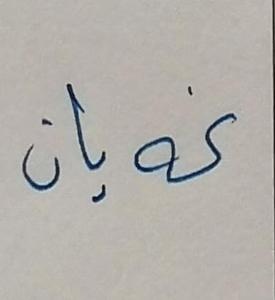 غه بان